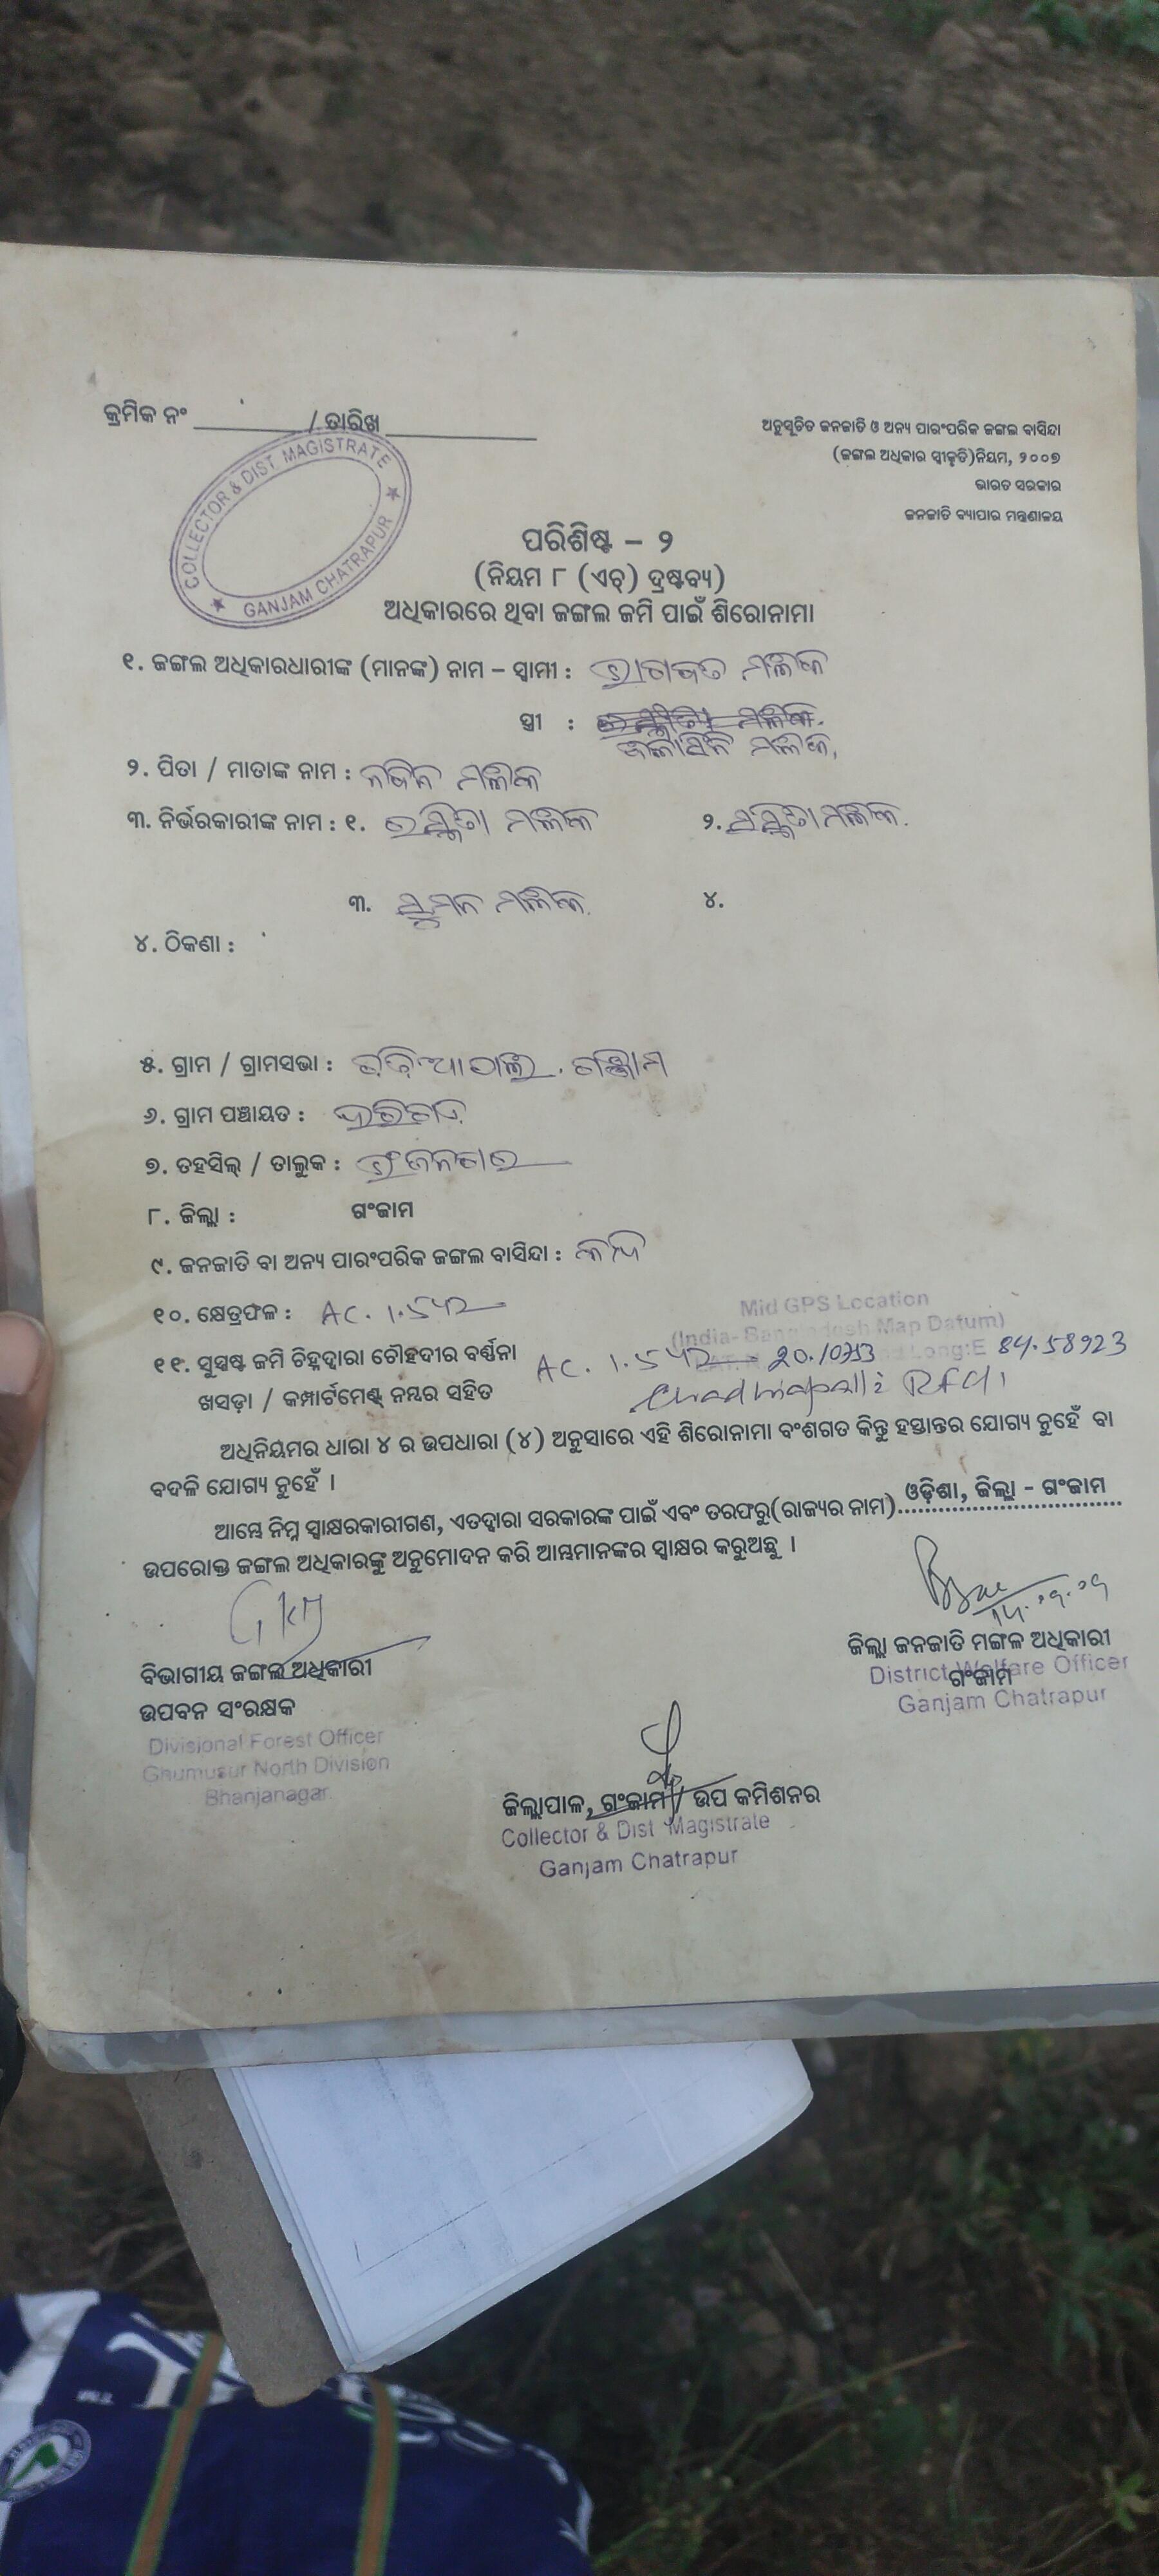 କ୍ରମିକ ନଂ / ତାରିଖ
COLLECTOR & DIST. MAGISTRATE
GANJAM CHATRAPUR
ଅନୁସୂଚିତ ଜନଜାତି ଓ ଅନ୍ୟ ପାରଂପରିକ ଜଙ୍ଗଲ ବାସିନ୍ଦା
(ଜଙ୍ଗଲ ଅଧିକାର ସ୍ୱୀକୃତି)ନିୟମ, ୨୦୦୭
ଭାରତ ସରକାର
ଜନଜାତି ବ୍ୟାପାର ମନ୍ତ୍ରଣାଳୟ
ପରିଶିଷ୍ଟ – ୨
(ନିୟମ ୮ (ଏଚ୍) ଦ୍ରଷ୍ଟବ୍ୟ)
ଅଧିକାରରେ ଥିବା ଜଙ୍ଗଲ ଜମି ପାଇଁ ଶିରୋନାମା
୧. ଜଙ୍ଗଲ ଅଧିକାରଧାରୀଙ୍କ (ମାନଙ୍କ) ନାମ – ସ୍ୱାମୀ : ଭାଗବତ ମଲ୍ଲିକ
ସ୍ତ୍ରୀ : ମଲ୍ଲିକ
୨. ପିତା / ମାତାଙ୍କ ନାମ : ନବିନ ମଲ୍ଲିକ
୩. ନିର୍ଭରକାରୀଙ୍କ ନାମ : ୧. ମଲ୍ଲିକ ୨. ମଲ୍ଲିକ
୩. ସୁମନ ମଲ୍ଲିକ ୪.
୪. ଠିକଣା :
୫. ଗ୍ରାମ / ଗ୍ରାମସଭା :
୬. ଗ୍ରାମ ପଞ୍ଚାୟତ :
୭. ତହସିଲ୍ / ତାଲୁକ : ଭଂଜନଗର
୮. ଜିଲ୍ଲା : ଗଂଜାମ
୯. ଜନଜାତି ବା ଅନ୍ୟ ପାରଂପରିକ ଜଙ୍ଗଲ ବାସିନ୍ଦା : କନ୍ଧ
୧୦. କ୍ଷେତ୍ରଫଳ : AC. 1.542
Mid GPS Location
(India- Bangladesh Map Datum)
୧୧. ସୁସ୍ପଷ୍ଟ ଜମି ଚିହ୍ନଦ୍ୱାରା ଚୌହଦୀର ବର୍ଣ୍ଣନା AC. 1.542 20.10753 Long:E 84.58923
ଖସଡ଼ା / କମ୍ପାର୍ଟମେଣ୍ଟ ନମ୍ବର ସହିତ
ଅଧିନିୟମର ଧାରା ୪ ର ଉପଧାରା (୪) ଅନୁସାରେ ଏହି ଶିରୋନାମା ବଂଶଗତ କିନ୍ତୁ ହସ୍ତାନ୍ତର ଯୋଗ୍ୟ ନୁହେଁ ବା
ବଦଳି ଯୋଗ୍ୟ ନୁହେଁ ।
ଆମ୍ଭେ ନିମ୍ନ ସ୍ୱାକ୍ଷରକାରୀଗଣ, ଏତଦ୍ୱାରା ସରକାରଙ୍କ ପାଇଁ ଏବଂ ତରଫରୁ(ରାଜ୍ୟର ନାମ) ଓଡ଼ିଶା, ଜିଲ୍ଲା - ଗଂଜାମ
ଉପରୋକ୍ତ ଜଙ୍ଗଲ ଅଧିକାରଙ୍କୁ ଅନୁମୋଦନ କରି ଆମ୍ଭମାନଙ୍କର ସ୍ୱାକ୍ଷର କରୁଅଛୁ ।
ଜିଲ୍ଲା ଜନଜାତି ମଙ୍ଗଳ ଅଧିକାରୀ
ଗଂଜାମ
District Welfare Officer
Ganjam Chatrapur
ବିଭାଗୀୟ ଜଙ୍ଗଲ ଅଧିକାରୀ
ଉପବନ ସଂରକ୍ଷକ
Divisional Forest Officer
Ghumusur North Division
Bhanjanagar
ଜିଲ୍ଲାପାଳ, ଗଂଜାମ / ଉପ କମିଶନର
Collector & Dist Magistrate
Ganjam Chatrapur